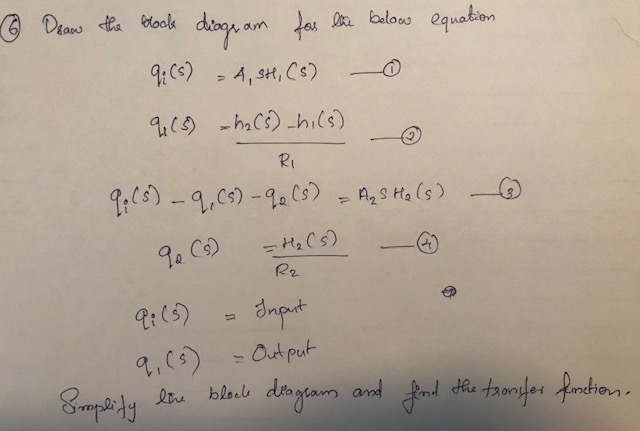 ⑥ Draw the block diagram for the below equation
qi(s) = A1 SH1(s) — ①
q1(s) = h2(s) - h1(s) / R1 — ②
qi(s) - q1(s) - q2(s) = A2 S H2(s) — ③
q2(s) = H2(s) / R2 — ④
qi(s) = Input
q1(s) = Output
Simplify the block diagram and find the transfer function.